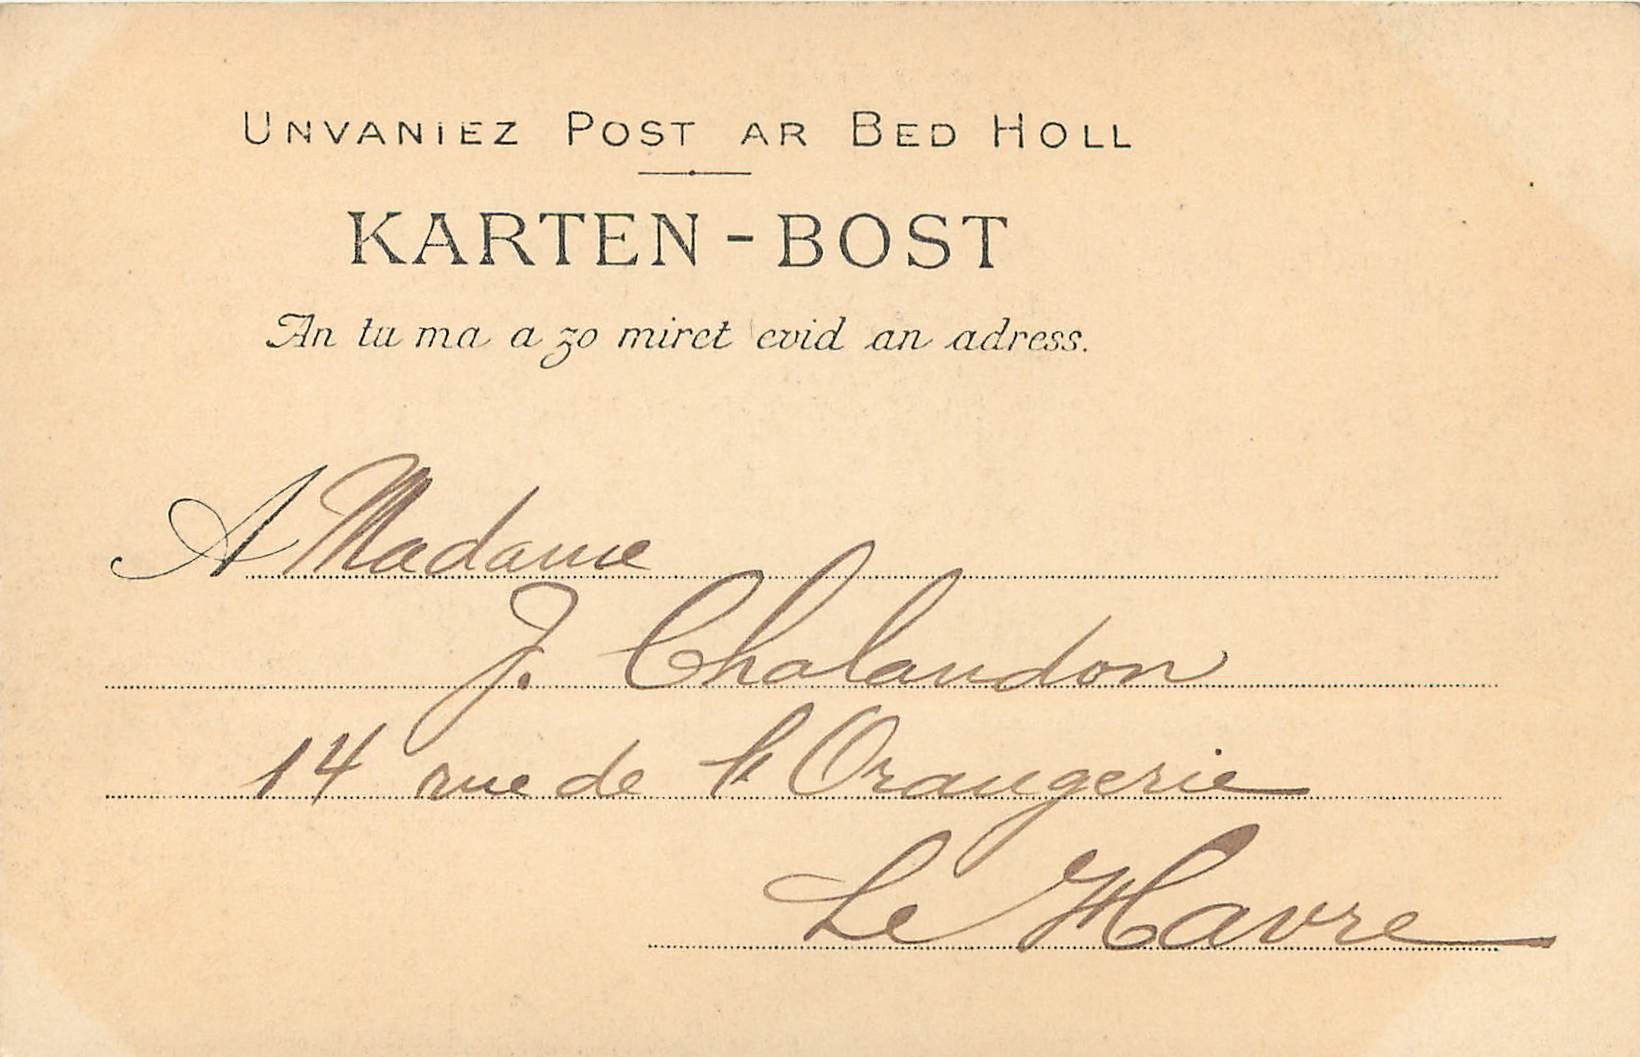 UNVANIEZ POST AR BED HOLL
KARTEN-BOST
An tu ma a zo miret evid an adress.
A Madame
J. Chalandon
14 rue de l'Orangerie
Le Havre